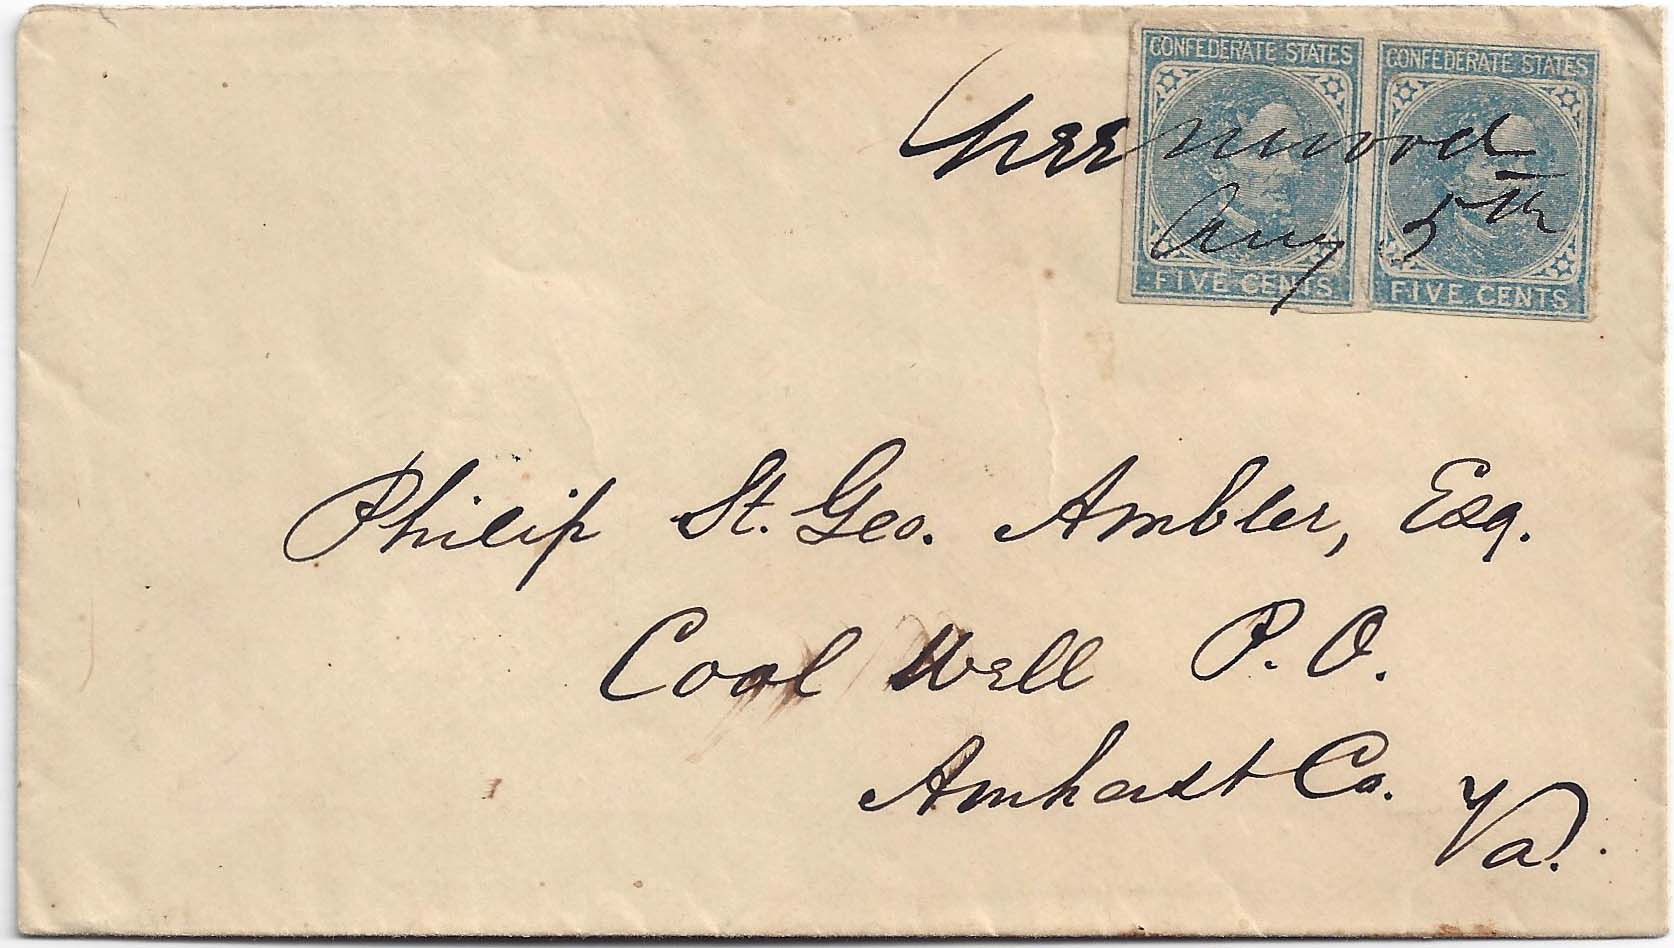 CONFEDERATE STATES CONFEDERATE STATES
Greenwood
Aug 5th
FIVE CENTS FIVE CENTS
Philip St. Geo. Ambler, Esq.
Cool Well P. O.
Amherst Co.
Va.